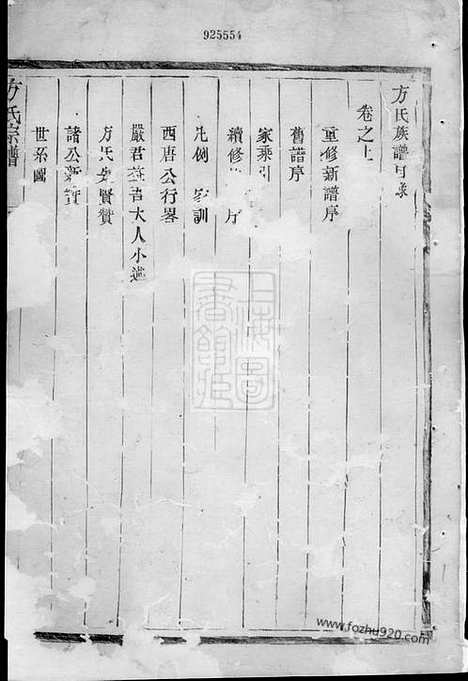 925554
方氏族譜目錄
卷之上
重修新譜序
舊譜序
家乘引
續修 序
凡例 家訓
西唐公行畧
嚴君 吉大人小述
方氏 賢贊
諸公新贊
世系圖
方氏宗譜
上海圖書館藏
www.fozhu920.com